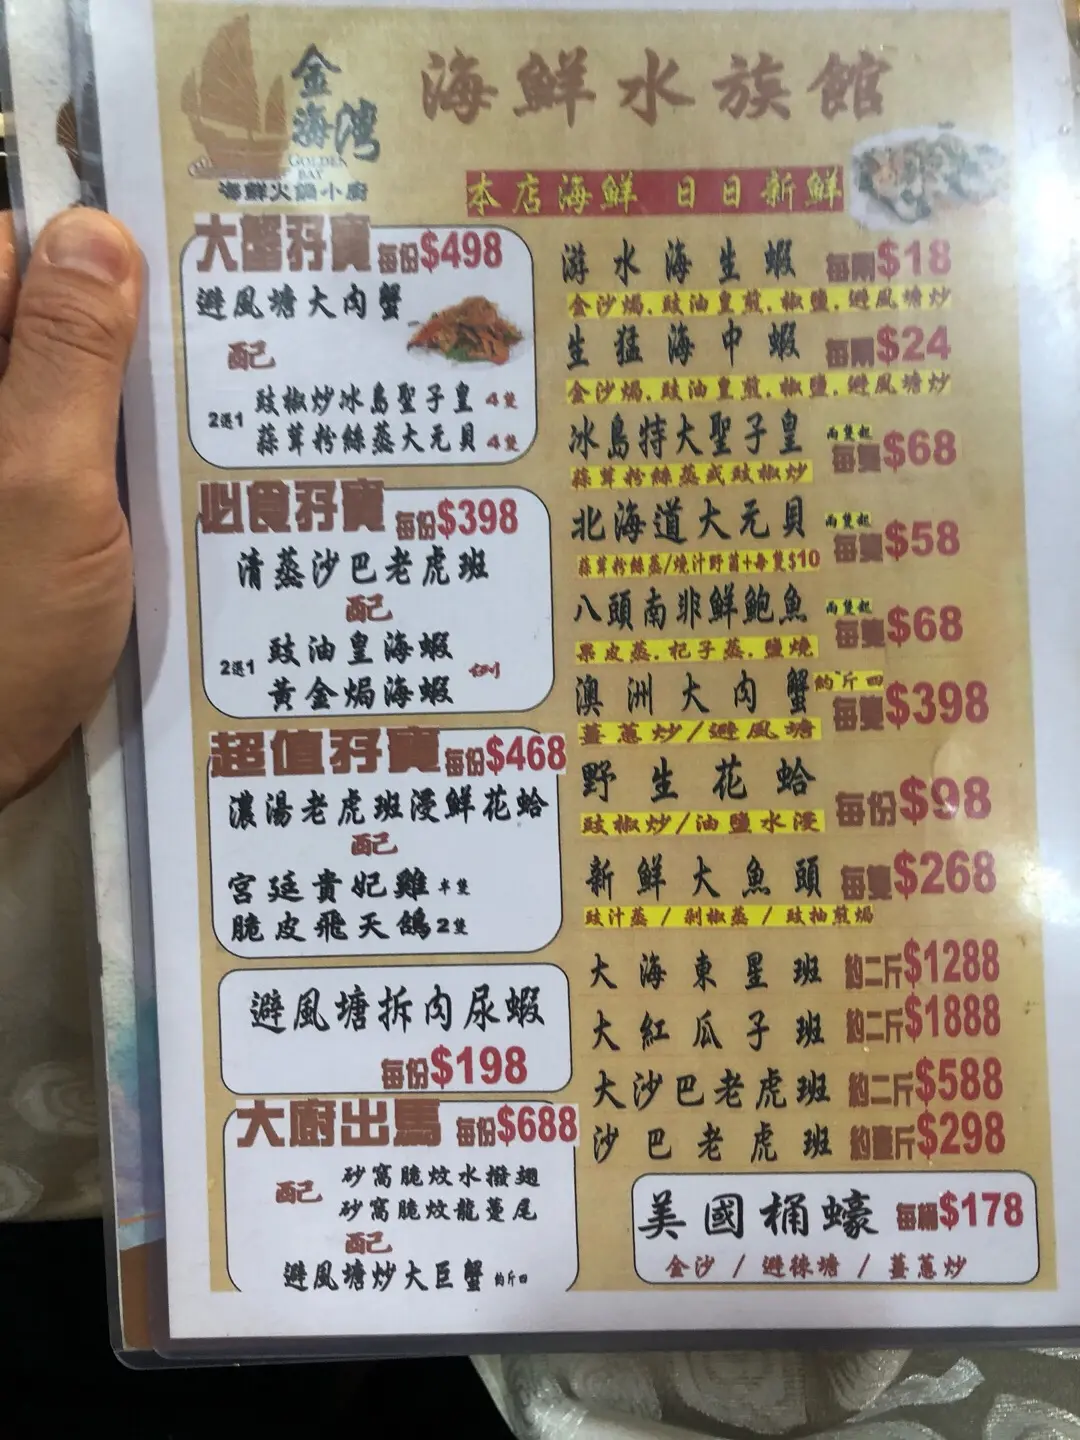 金海灣
GOLDEN BAY
海鮮火鍋小廚
海鮮水族館
本店海鮮 日日新鮮
大蟹孖寶 每份$498
避風塘大肉蟹
配
2選1
豉椒炒冰島聖子皇 4隻
蒜茸粉絲蒸大元貝 4隻
必食孖寶 每份$398
清蒸沙巴老虎班
配
2選1
豉油皇海蝦
黃金焗海蝦
(例)
超值孖寶 每份$468
濃湯老虎班浸鮮花蛤
配
宮廷貴妃雞 半隻
脆皮飛天鴿 2隻
避風塘拆肉尿蝦
每份$198
大廚出馬 每份$688
配
砂窩脆炆水撥翅
砂窩脆炆龍躉尾
配
避風塘炒大巨蟹 約斤四
游水海生蝦 每兩$18
金沙焗.豉油皇煎.椒鹽.避風塘炒
生猛海中蝦 每兩$24
金沙焗.豉油皇煎.椒鹽.避風塘炒
冰島特大聖子皇 兩隻起 每隻$68
蒜茸粉絲蒸或豉椒炒
北海道大元貝 兩隻起 每隻$58
蒜茸粉絲蒸/燒汁野菌+每隻$10
八頭南非鮮鮑魚 兩隻起 每隻$68
果皮蒸.杞子蒸.鹽燒
澳洲大肉蟹 約斤四 每隻$398
薑蔥炒/避風塘
野生花蛤 每份$98
豉椒炒/油鹽水浸
新鮮大魚頭 每隻$268
豉汁蒸/剁椒蒸/豉抽煎焗
大海東星班 約二斤$1288
大紅瓜子班 約二斤$1888
大沙巴老虎班 約二斤$588
沙巴老虎班 約壹斤$298
美國桶蠔 每桶$178
金沙/避祿塘/薑蔥炒